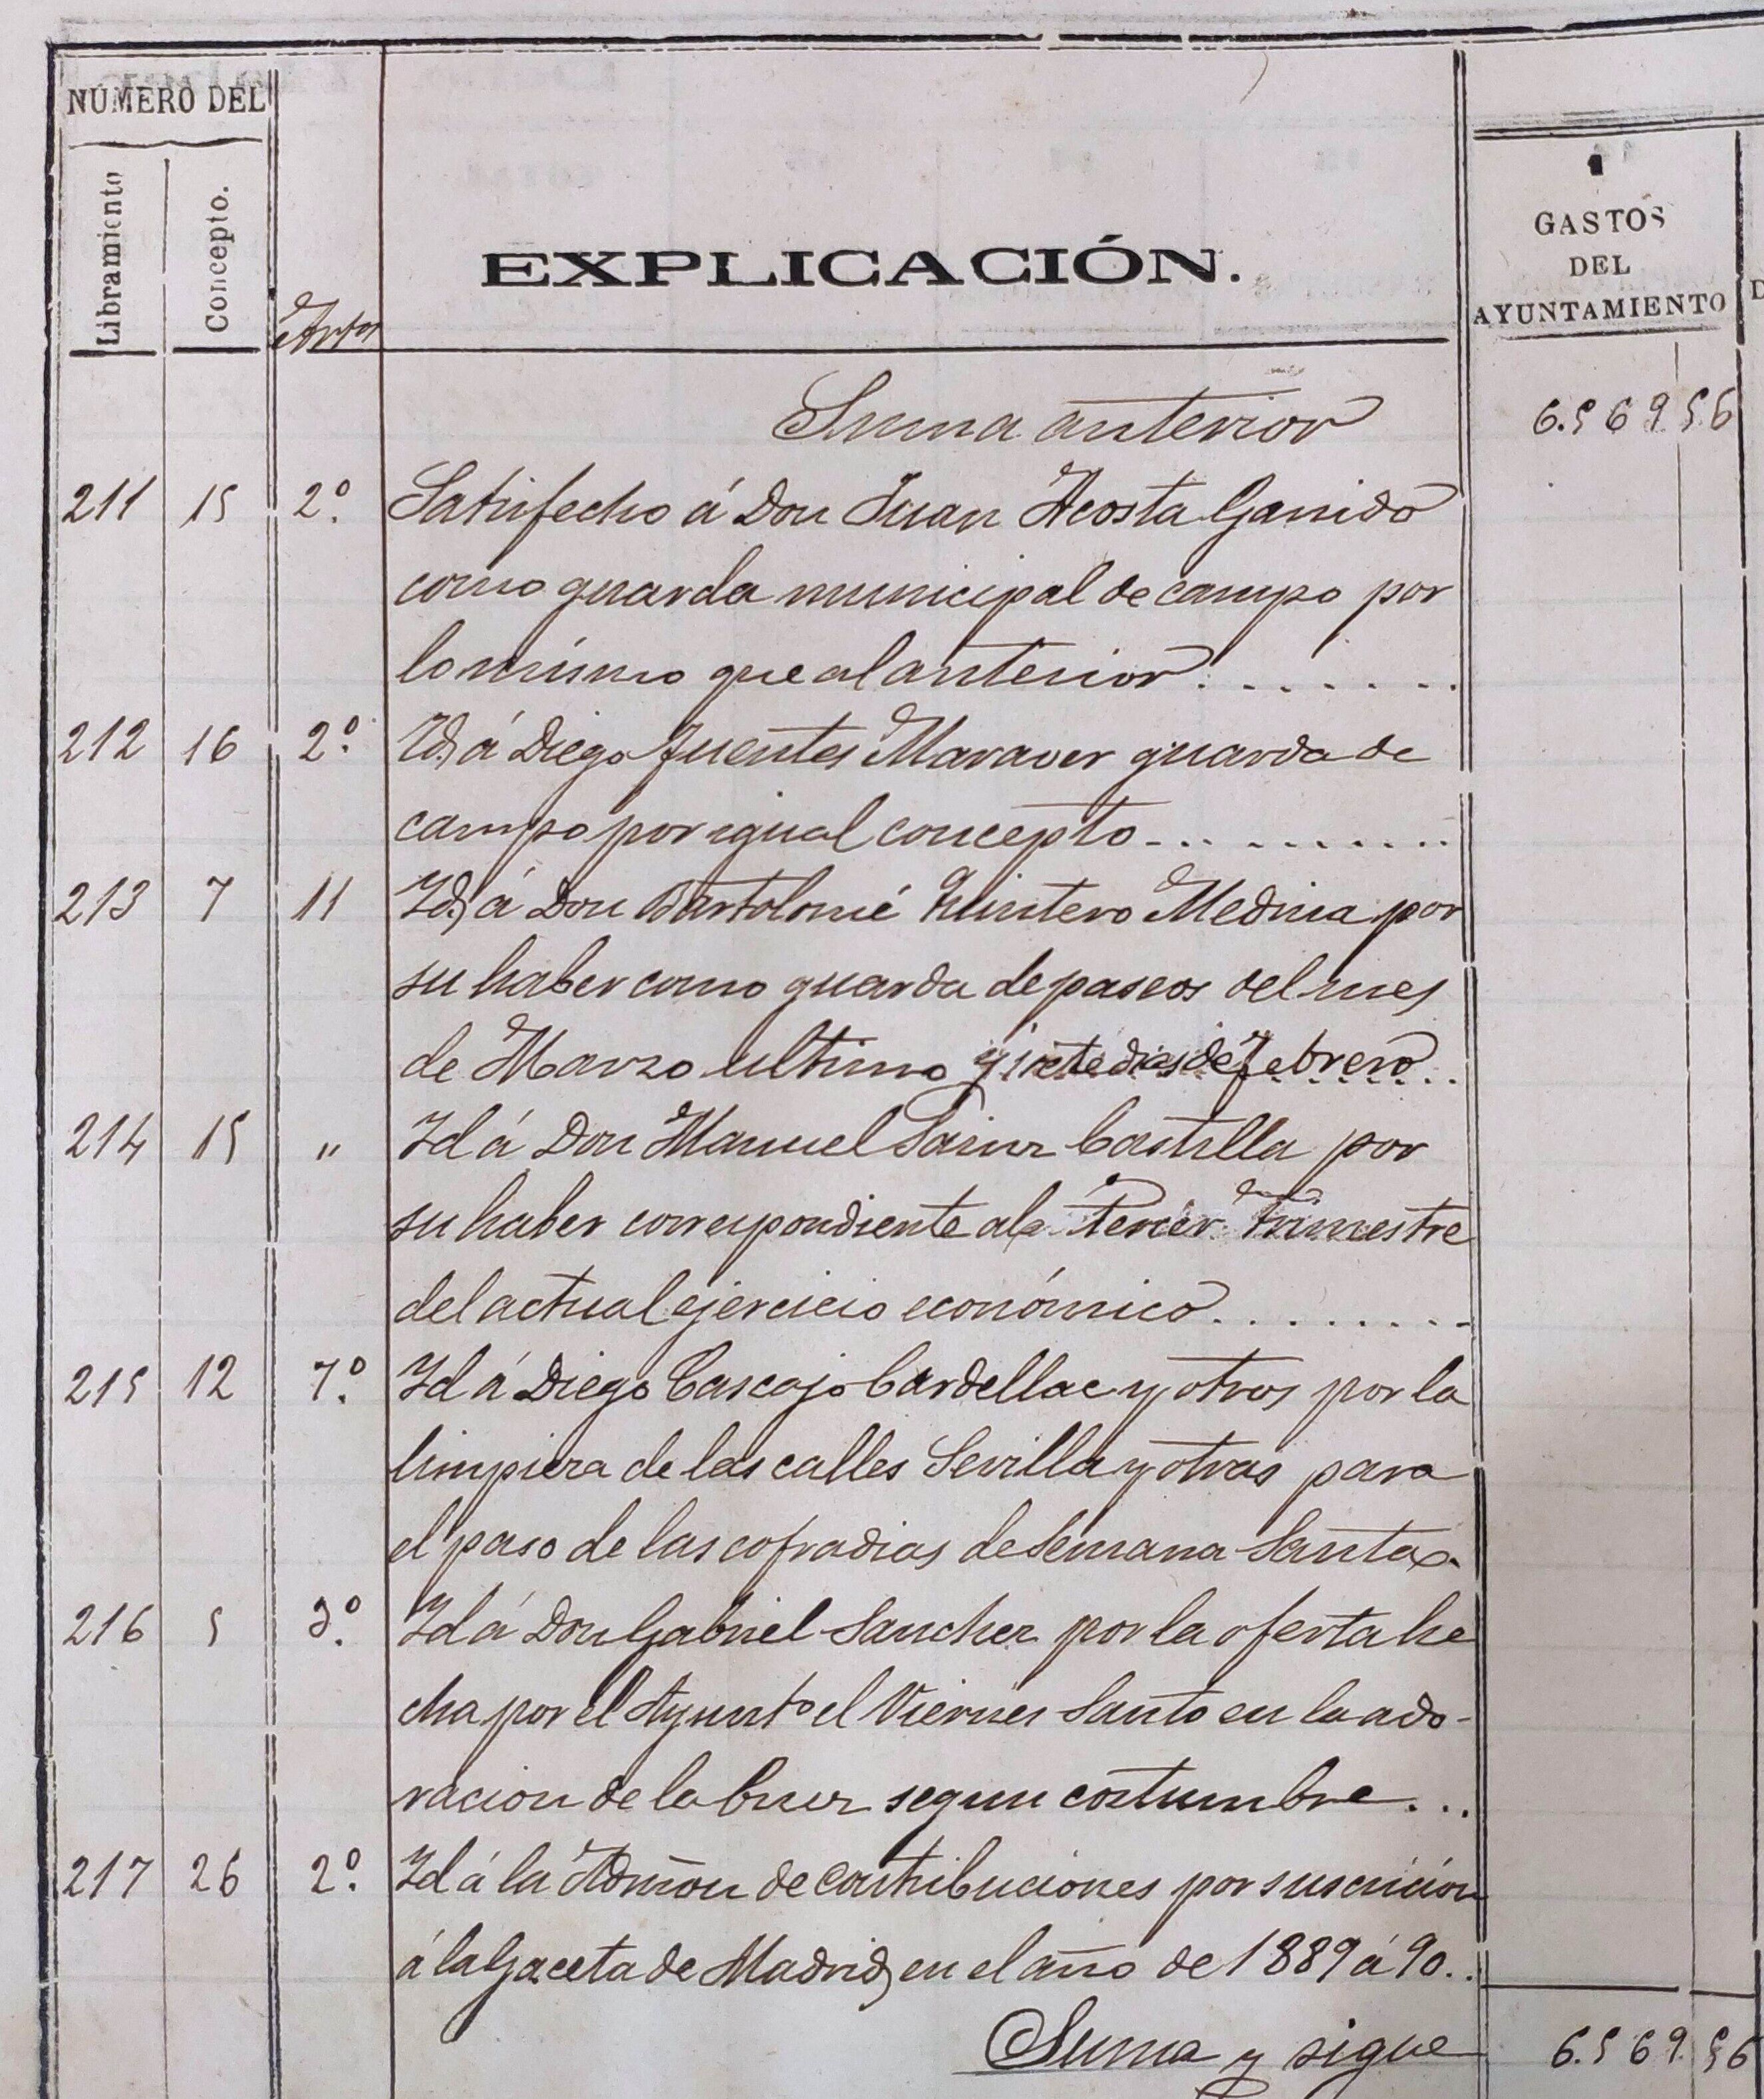 NÚMERO DEL
Libramiento
Concepto.
Artos
EXPLICACIÓN.
GASTOS
DEL
AYUNTAMIENTO
Suma anterior 6.569 56
211 15 2º. Satisfecho á Don Juan Acosta Garrido
como guarda municipal de campo por
lo mismo que al anterior........
212 16 2º. Id, á Diego Fuentes Maraver guarda de
campo por igual concepto...........
213 7 11 Id, á Don Bartolomé Quintero Medina por
su haber como guarda de paseos del mes
de Marzo ultimo y siete dias de Febrero...
214 15 " Id á Don Manuel Sainz Castilla por
su haber correspondiente al Tercer Trimestre
del actual ejercicio económico.........
215 12 7º. Id á Diego Cascajo Cardellac y otros por la
limpieza de las calles Sevilla y otras para
el paso de las cofradias de Semana Santa.
216 5 3º. Id á Don Gabriel Sanchez por la oferta he
cha por el Ayuntº el Viernes Santo en la ado-
racion de la Cruz segun costumbre...
217 26 2º. Id á la Admon de contribuciones por suscricion
á la Gaceta de Madrid, en el año de 1889 á 90..
Suma y sigue 6.569 56